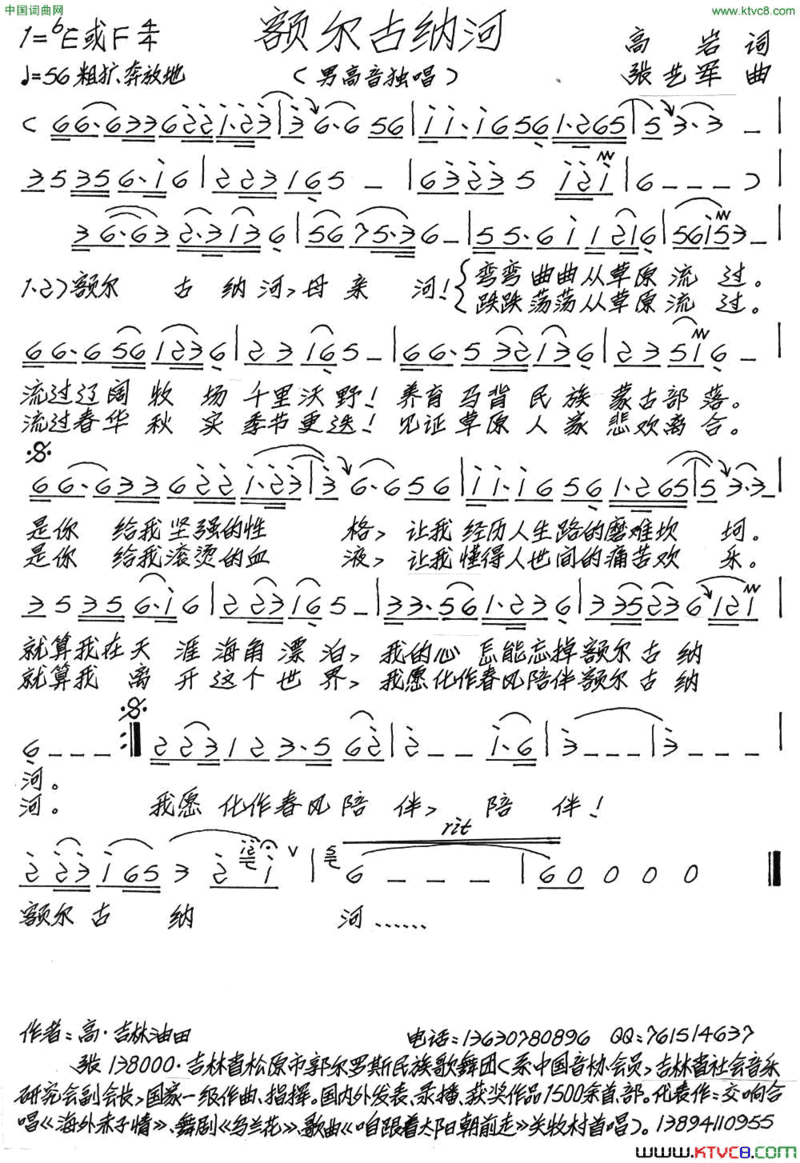 中国词曲网
www.ktvc8.com
额尔古纳河
1=♭E或F 4/4
高岩 词
♩=56 粗犷、奔放地
(男高音独唱)
张艺军 曲
(66·6336221·23|36·656|1·1656 1·265|53·3—|
353566·16|223165—|63235 121|6———)
36·632·3136|5675·36—|55·611216|56153—|
1.2)额尔 古纳河,母亲 河!{弯弯曲曲从草原流 过。
跌跌荡荡从草原流 过。
66·6561236|23165—|66·532136|23516—|
流过辽阔牧场千里沃野!养育马背民族蒙古部落。
流过春华秋实季节更迭!见证草原人家悲欢离合。
66·6336221·23|36·656|11·165 61·265|53·3—|
是你 给我坚强的性 格,让我经历人生路的磨难坎 坷。
是你 给我滚烫的血 液,让我懂得人世间的痛苦欢 乐。
35356·16|223165—|33·561·236|335236121|
就算我在天涯海角漂泊,我的心怎能忘掉额尔古纳
就算我离开这个世界,我愿化作春风陪伴额尔古纳
6———:‖223123·562|2——1·6|3———|3———|
河。
河。 我愿 化作春风陪 伴,陪 伴!
rit
2231653 2 1 ∨|6———|60000‖
额尔古 纳 河……
作者:高·吉林油田 电话:13630780896 QQ:761514637
张138000·吉林省松原市郭尔罗斯民族歌舞团(系中国音协会员,吉林省社会音乐
研究会副会长,国家一级作曲、指挥。国内外发表、录播、获奖作品1500余首、部。代表作:交响合
唱《海外赤子情》、舞剧《乌兰花》、歌曲《咱跟着太阳朝前走》关牧村首唱)。13894110955
www.KTVC8.com